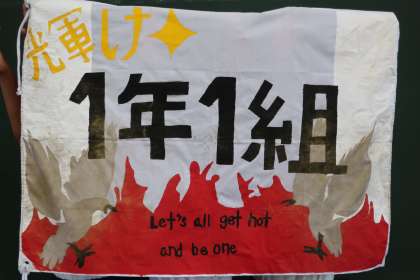 輝け
1年1組
Let's all get hot
and be one